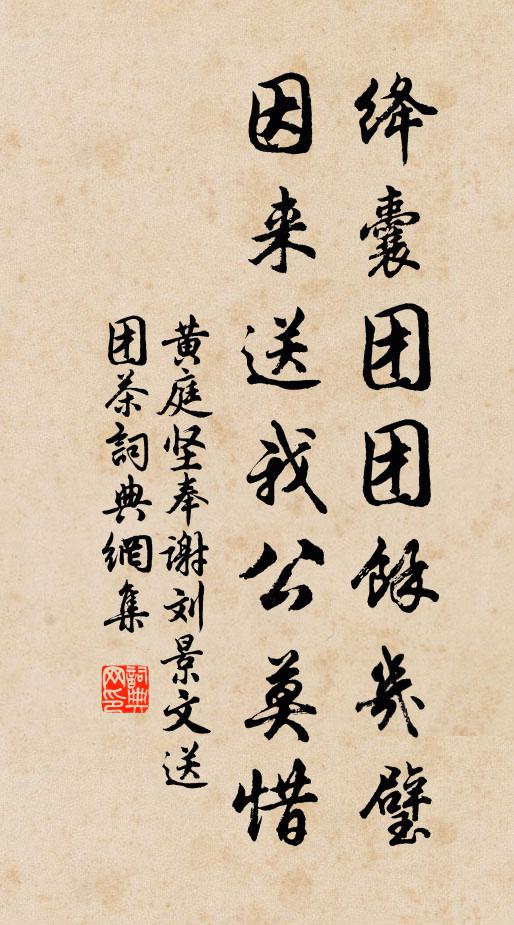 绛囊团团餘幾璧
因来送我公莫惜
黄庭坚奉谢刘景文送
团茶詞典網集
詞典網印